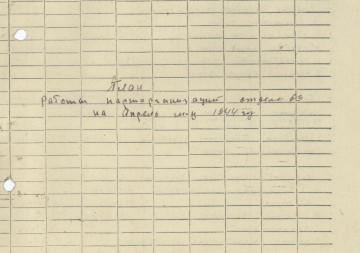 План
Работы парторганизаций отдела
на Апрель м-ц 1944 г